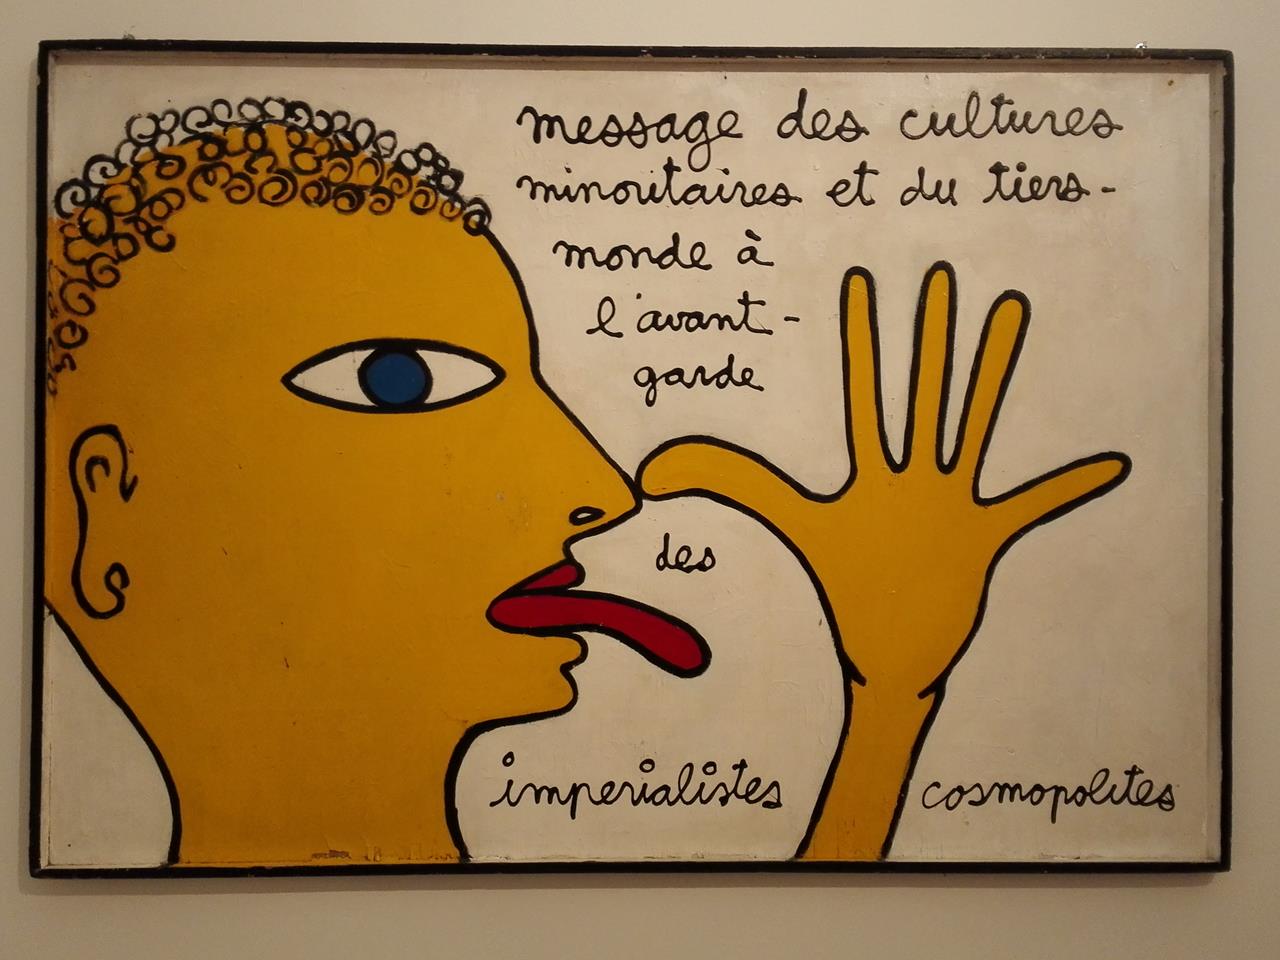 message des cultures
minoritaires et du tiers-
monde à
l'avant-
garde
des
imperialistes cosmopolites